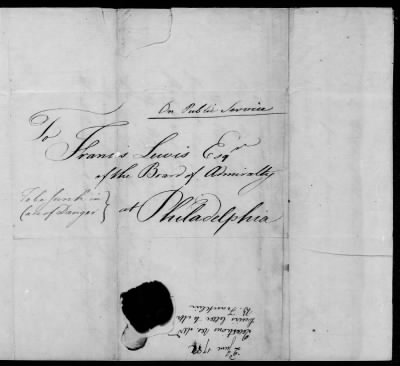 On Public Service
To
Francis Lewis Esqr
of the Board of Admiralty
at Philadelphia
To be sunk in
Case of Danger
letter to
B. Franklin